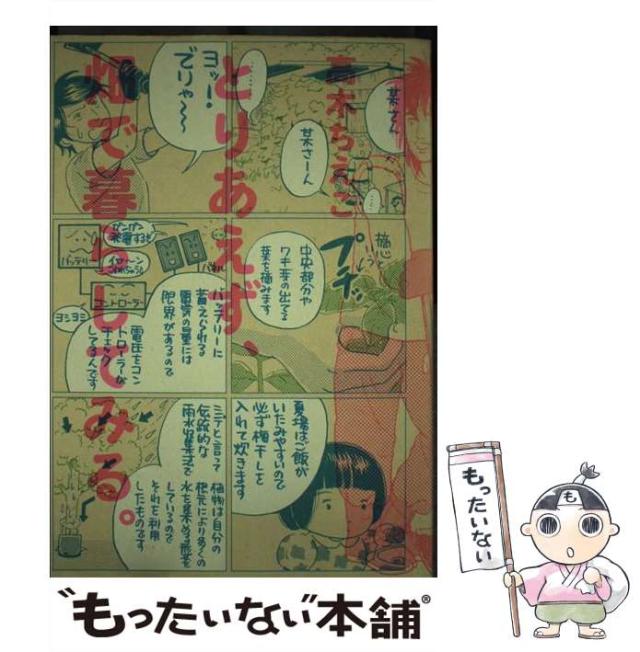 高木ちえこ
とりあえず、
畑で暮らしてみる。
ヨッー!
でりゃ〜〜
摘心
プチッ
中央部分や
ワキ芽の出てる
葉を摘みます
ガンガン
発電するぞ
パネル
バッテリー
コントローラー
ヨシヨシ
バッテリーに
蓄えられる
電気の量には
限界があるので
電圧をコン
トローラーが
チェック
してるんです
夏場はご飯が
いたみやすいので
必ず梅干しを
入れて炊きます
と言って
伝統的な
雨水収集法で
植物は自分の
根元により多くの
水を集める形を
しているので
それを利用
したものです
も
もったいない
“もったいない本舗®